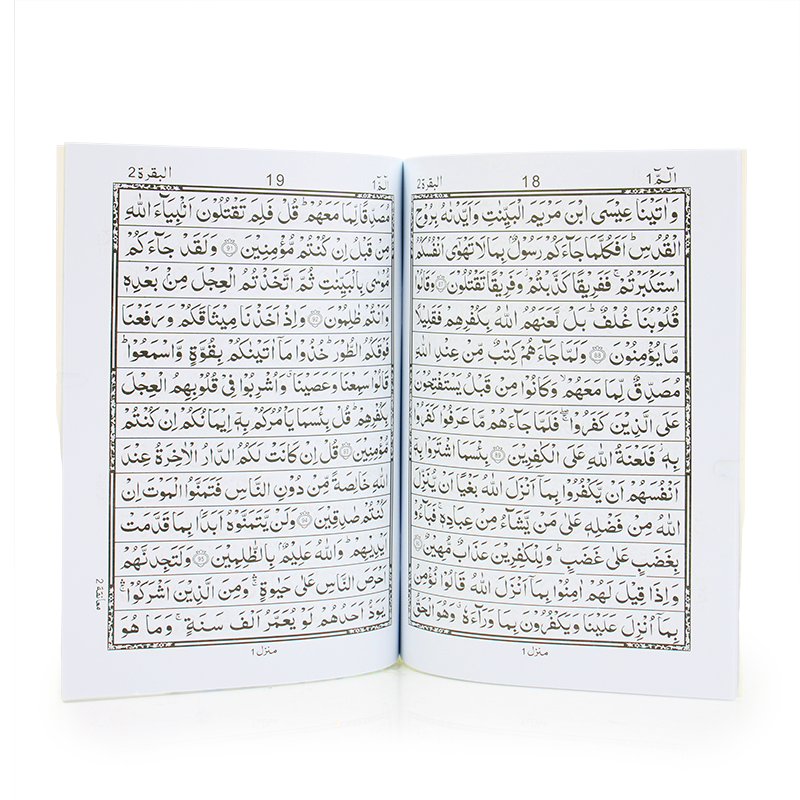 الٓمّٓ 1
18
البقرة 2
وَاٰتَيْنَا عِيْسَى ابْنَ مَرْيَمَ الْبَيِّنٰتِ وَاَيَّدْنٰهُ بِرُوْحِ
الْقُدُسِ ؕ اَفَكُلَّمَا جَآءَكُمْ رَسُوْلٌۢ بِمَا لَا تَهْوٰٓى اَنْفُسُكُمُ
اسْتَكْبَرْتُمْ ۚ فَفَرِيْقًا كَذَّبْتُمْ ؗ وَفَرِيْقًا تَقْتُلُوْنَ ۝87 وَقَالُوْا
قُلُوْبُنَا غُلْفٌ ؕ بَلْ لَّعَنَهُمُ اللّٰهُ بِكُفْرِهِمْ فَقَلِيْلًا
مَّا يُؤْمِنُوْنَ ۝88 وَلَمَّا جَآءَهُمْ كِتٰبٌ مِّنْ عِنْدِ اللّٰهِ
مُصَدِّقٌ لِّمَا مَعَهُمْ ۙ وَكَانُوْا مِنْ قَبْلُ يَسْتَفْتِحُوْنَ
عَلَى الَّذِيْنَ كَفَرُوْا ۖۚ فَلَمَّا جَآءَهُمْ مَّا عَرَفُوْا كَفَرُوْا
بِهٖ ؗ فَلَعْنَةُ اللّٰهِ عَلَى الْكٰفِرِيْنَ ۝89 بِئْسَمَا اشْتَرَوْا بِهٖۤ
اَنْفُسَهُمْ اَنْ يَّكْفُرُوْا بِمَاۤ اَنْزَلَ اللّٰهُ بَغْيًا اَنْ يُّنَزِّلَ
اللّٰهُ مِنْ فَضْلِهٖ عَلٰى مَنْ يَّشَآءُ مِنْ عِبَادِهٖ ۚ فَبَآءُوْ
بِغَضَبٍ عَلٰى غَضَبٍ ؕ وَلِلْكٰفِرِيْنَ عَذَابٌ مُّهِيْنٌ ۝90
وَاِذَا قِيْلَ لَهُمْ اٰمِنُوْا بِمَاۤ اَنْزَلَ اللّٰهُ قَالُوْا نُؤْمِنُ
بِمَاۤ اُنْزِلَ عَلَيْنَا وَيَكْفُرُوْنَ بِمَا وَرَآءَهٗ ۗ وَهُوَ الْحَقُّ
منزل 1
الٓمّٓ 1
19
البقرة 2
مُصَدِّقًا لِّمَا مَعَهُمْ ؕ قُلْ فَلِمَ تَقْتُلُوْنَ اَنْۢبِيَآءَ اللّٰهِ
مِنْ قَبْلُ اِنْ كُنْتُمْ مُّؤْمِنِيْنَ ۝91 وَلَقَدْ جَآءَكُمْ
مُّوْسٰى بِالْبَيِّنٰتِ ثُمَّ اتَّخَذْتُمُ الْعِجْلَ مِنْۢ بَعْدِهٖ
وَاَنْتُمْ ظٰلِمُوْنَ ۝92 وَاِذْ اَخَذْنَا مِيْثَاقَكُمْ وَرَفَعْنَا
فَوْقَكُمُ الطُّوْرَ ؕ خُذُوْا مَاۤ اٰتَيْنٰكُمْ بِقُوَّةٍ وَّاسْمَعُوْا ؕ
قَالُوْا سَمِعْنَا وَعَصَيْنَا ۗ وَاُشْرِبُوْا فِيْ قُلُوْبِهِمُ الْعِجْلَ
بِكُفْرِهِمْ ؕ قُلْ بِئْسَمَا يَاْمُرُكُمْ بِهٖۤ اِيْمَانُكُمْ اِنْ كُنْتُمْ
مُّؤْمِنِيْنَ ۝93 قُلْ اِنْ كَانَتْ لَكُمُ الدَّارُ الْاٰخِرَةُ عِنْدَ
اللّٰهِ خَالِصَةً مِّنْ دُوْنِ النَّاسِ فَتَمَنَّوُا الْمَوْتَ اِنْ
كُنْتُمْ صٰدِقِيْنَ ۝94 وَلَنْ يَّتَمَنَّوْهُ اَبَدًاۢ بِمَا قَدَّمَتْ
اَيْدِيْهِمْ ؕ وَاللّٰهُ عَلِيْمٌۢ بِالظّٰلِمِيْنَ ۝95 وَلَتَجِدَنَّهُمْ
اَحْرَصَ النَّاسِ عَلٰى حَيٰوةٍ ۛۚ وَمِنَ الَّذِيْنَ اَشْرَكُوْا ۛۚ
يَوَدُّ اَحَدُهُمْ لَوْ يُعَمَّرُ اَلْفَ سَنَةٍ ۚ وَمَا هُوَ
معانقة 2
منزل 1